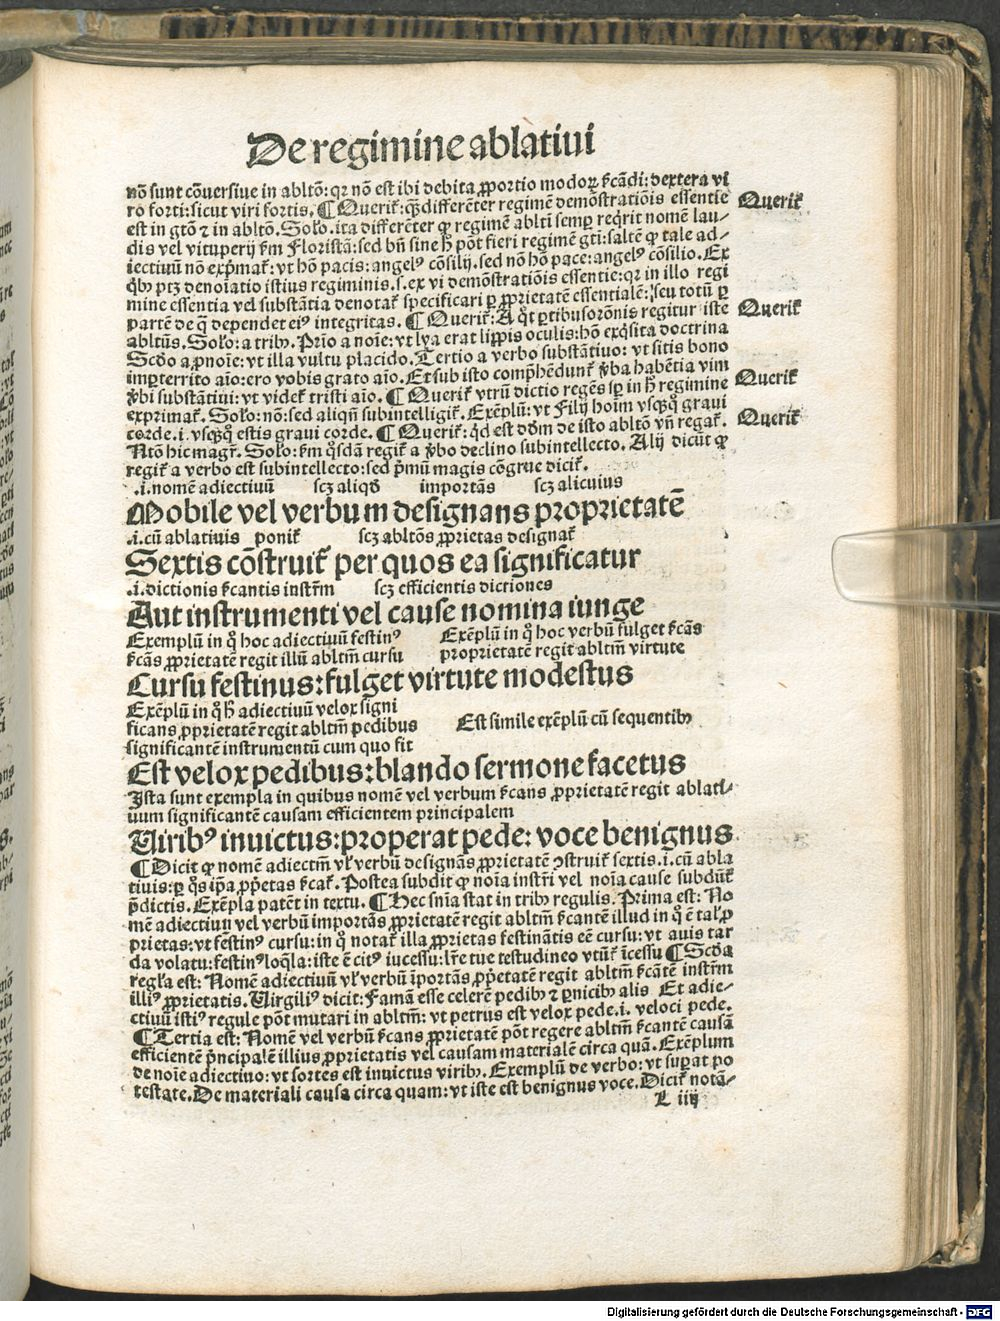 De regimine ablatiui
nõ sunt cõuersiue in abltõ: qꝛ nõ est ibi debita ꝓportio modoꝝ ẜcãdi: dextera vi
ro forti: sicut viri fortis. ¶ Queriť: qͣ differẽter regimẽ demõstratiõis essentie
Queriť
est in gtõ ⁊ in abltõ. Solo. ita differẽter ꝙ regimẽ ablti semꝑ reqͥrit nomẽ lau-
dis vel vituperij ẜm Floristã: sed bñ sine h̾ põt fieri regimẽ gti: saltẽ ꝙ tale ad-
iectiuũ nõ exp̃mať: vt hõ pacis: angelꝰ cõsilij. sed nõ hõ pace: angelꝰ cõsilio. Ex
qͥbꝰ ptꝫ denoĩatio istius regiminis. s. ex vi demõstratiõis essentie: qꝛ in illo regi
mine essentia vel substãtia denotať specificari ꝑ ꝓprietatẽ essentialẽ: seu totũ ꝑ
partẽ de q̃ dependet eiꝰ integritas. ¶ Queriť: A qͦt ꝑtibus orõnis regitur iste
Queriť
abltũs. Solo: a tribꝰ. Prĩo a noĩe: vt lya erat lippis oculis: hõ exqͥsita doctrina
Scďo a ꝓnoĩe: vt illa vultu placido. Tertio a verbo substãtiuo: vt sitis bono
imꝑterrito aĩo: ero vobis grato aĩo. Et sub isto comp̃hẽdunť v̾ba habẽtia vim
v̾bi substãtiui: vt videť tristi aĩo. ¶ Queriť vtrũ dictio regẽs sꝑ in h̾ regimine
Queriť
exprimať. Solo: nõ: sed aliqñ subintelligiť. Exẽplũ: vt Filij hoĩm vsqꝫqͦ graui
corde. i. vsqꝫqͦ estis graui corde. ¶ Queriť: qͥd est dõm de isto abltõ vñ regať.
Queriť
Ntõ hic magr̃. Solo: ẜm qͦsdã regiť a v̾bo declino subintellecto. Alij dicũt ꝙ
regiť a verbo est subintellecto: sed p̃mũ magis cõgrue diciť.
.i. nomẽ adiectiuũ scꝫ aliqͦd importãs scꝫ alicuius
Mobile vel verbum designans proprietatẽ
.i. cũ ablatiuis poniť scꝫ abltõs ꝓprietas designať
Sextis cõstruiť per quos ea significatur
.i. dictionis ẜcantis instr̃m scꝫ efficientis dictiones
Aut instrumenti vel cause nomina iunge
Exemplũ in qͦ hoc adiectiuũ festinꝰ Exẽplũ in qͦ hoc verbũ fulget ẜcãs
ẜcãs ꝓprietatẽ regit illũ abltm̃ cursu proprietatẽ regit abltm̃ virtute
Cursu festinus: fulget virtute modestus
Exẽplũ in qͦ h̾ adiectiuũ velox signi
ficans ꝓprietatẽ regit abltm̃ pedibus Est simile exẽplũ cũ sequentibꝰ
significantẽ instrumentũ cum quo fit
Est velox pedibus: blando sermone facetus
Ista sunt exempla in quibus nomẽ vel verbum ẜcans ꝓprietatẽ regit ablati-
uum significantẽ causam efficientem principalem
Viribꝰ inuictus: properat pede: voce benignus
¶ Dicit ꝙ nomẽ adiectm̃ vľ verbũ designãs ꝓprietatẽ ꝯstruiť sextis. i. cũ abla
tiuis: ꝑ qͦs ip̃a ꝓp̃etas ẜcať. Postea subdit ꝙ noĩa instr̃i vel noĩa cause subdũť
p̃dictis. Exẽpla patẽt in textu. ¶ Hec snĩa stat in tribꝰ regulis. Prima est: No
mẽ adiectiuũ vel verbũ importãs ꝓprietatẽ regit abltm̃ ẜcantẽ illud in qͦ ẽ tal̾ ꝓ
prietas: vt festinꝰ cursu: in qͦ notať illa ꝓprietas festinãtis eẽ cursu: vt auis tar
da volatu: festinꝰ loqͣla: iste ẽ citꝰ incessu: lr̃e tue testudineo vtũť ĩcessu ¶ Scďa
regl̃a est: Nomẽ adiectiuũ vľ verbũ ĩportãs ꝓp̃etatẽ regit abltm̃ ẜcãtẽ instr̃m
illiꝰ ꝓprietatis. Virgiliꝰ dicit: Famã esse celerẽ pedibꝰ ⁊ ꝑnicibꝰ alis Et adie-
ctiuũ istiꝰ regule põt mutari in abltm̃: vt petrus est velox pede. i. veloci pede.
¶ Tertia est: Nomẽ vel verbũ ẜcans ꝓprietatẽ põt regere abltm̃ ẜcantẽ causã
efficientẽ p̃ncipalẽ illius ꝓprietatis vel causam materialẽ circa quã. Exẽplum
de noĩe adiectiuo: vt sortes est inuictus viribꝰ. Exemplũ de verbo: vt suꝑat po
testate. De materiali causa circa quam: vt iste est benignus voce. Diciť notã-
L iiij
Digitalisierung gefördert durch die Deutsche Forschungsgemeinschaft - DFG